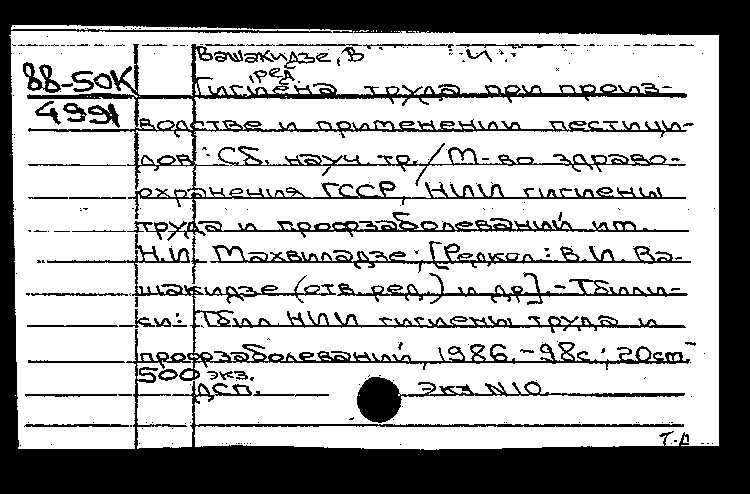 Вашакидзе, В. И.
ред.
88-50К
4991
Гигиена труда при произ-
водстве и применении пестици-
дов: Сб. науч. тр. / М-во здраво-
охранения ГССР, НИИ гигиены
труда и профзаболеваний им.
Н.И. Махвиладзе; [Редкол.: В.И. Ва-
шакидзе (отв. ред.) и др]. - Тбили-
си: Тбил. НИИ гигиены труда и
профзаболеваний, 1986. - 98с.; 20см
500 экз.
ДСП. Экз N10.
Т-П